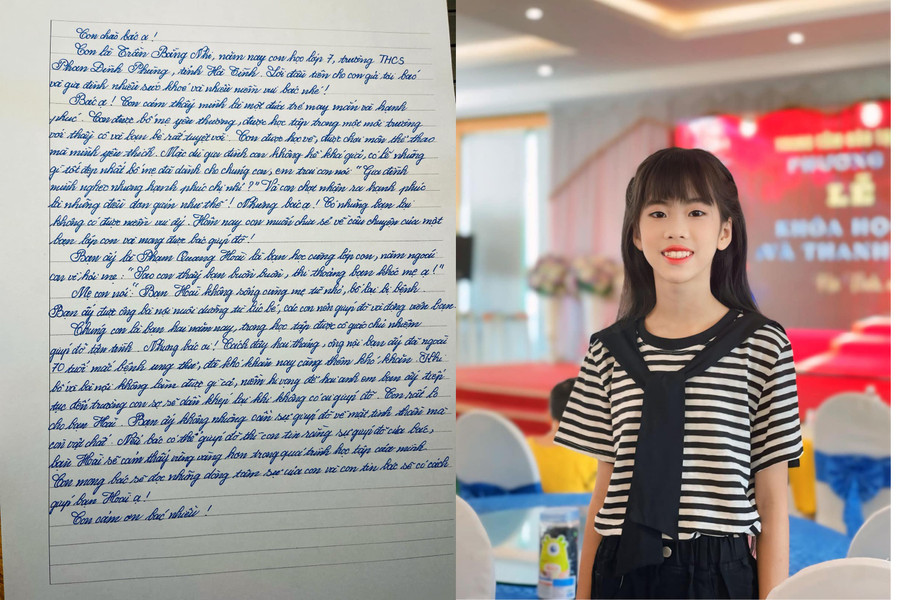 Con chào bác ạ!
Con là Trần Băng Nhi, năm nay con học lớp 7, trường THCS
Phan Đình Phùng, tỉnh Hà Tĩnh. Lời đầu tiên cho con gửi tới bác
và gia đình nhiều sức khoẻ và nhiều niềm vui bác nhé!
Bác ạ! Con cảm thấy mình là một đứa trẻ may mắn và hạnh
phúc. Con được bố mẹ yêu thương, được học tập trong một môi trường
với thầy cô và bạn bè rất tuyệt vời. Con được học vẽ, được chơi môn thể thao
mà mình yêu thích. Mặc dù gia đình con không hề khá giả, có lẽ những
gì tốt đẹp nhất bố mẹ đã dành cho chúng con, em trai con nói: "Gia đình
mình nghèo nhưng hạnh phúc chị nhỉ?" Và con chợt nhận ra hạnh phúc
là những điều đơn giản như thế! Nhưng bác ạ! Có những bạn lại
không có được niềm vui ấy. Hôm nay con muốn chia sẻ về câu chuyện của một
bạn lớp con và mong được bác giúp đỡ!
Bạn ấy là Phạm Quang Hoài là bạn học cùng lớp con, năm ngoái
con về hỏi mẹ: "Sao con thấy bạn buồn buồn, thi thoảng bạn khóc mẹ ạ!"
Mẹ con nói: "Bạn Hoài không sống cùng mẹ từ nhỏ, bố lại bị bệnh.
Bạn ấy được ông bà nội nuôi dưỡng từ lúc bé, các con nên giúp đỡ và động viên bạn.
Chúng con là bạn hai năm nay, trong học tập được cô giáo chủ nhiệm
giúp đỡ tận tình. Nhưng bác ơi! Cách đây hai tháng ông nội bạn ấy đã ngoài
70 tuổi mắc bệnh ung thư, đã khó khăn nay càng thêm khó khăn. Khi
bố và bà nội không làm được gì cả, niềm hi vọng để hai anh em bạn ấy tiếp
tục đến trường con sợ sẽ dần khép lại khi không có ai giúp đỡ. Con rất lo
cho bạn Hoài. Bạn ấy không những cần sự giúp đỡ về mặt tinh thần mà
còn vật chất. Nếu bác có thể giúp đỡ thì con tin rằng sự giúp đỡ của bác,
bạn Hoài sẽ cảm thấy vững vàng hơn trong quá trình học tập của mình.
Con mong bác sẽ đọc những dòng tâm sự của con và con tin bác sẽ có cách
giúp bạn Hoài ạ!
Con cảm ơn bác nhiều!
PHƯƠNG
LỄ
KHÓA HỌ
VÀ THANH